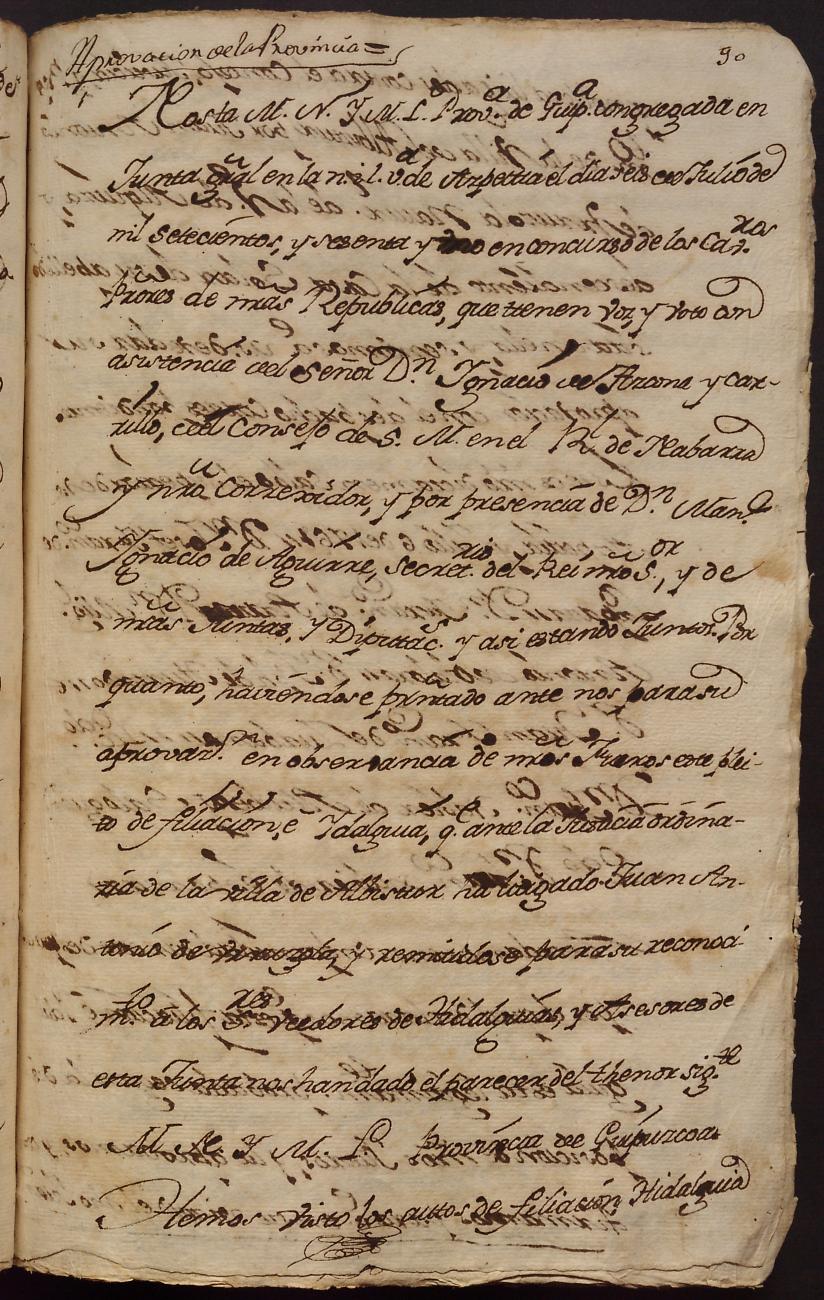 Aprovacion de la Provincia =
90
Nos la M. N. Y M. L. Prov.a de Guip.a congregada en
Junta gral en la n. y l. v.a de Azpeitia el dia seis de Julio de
mil setecientos, y sesenta y uno en concurso de los Cav.ros
Prores de nras Republicas, que tienen voz, y voto con
asistencia del Señor D.n Ignacio de Azcona y Car-
rillo, del Consejo de S. M. en el R. de Nabarra
y nro Correxidor, y por presencia de D.n Man.l
Ignacio de Aguirre, Secret.rio del Rei nro S.or, y de
nras Juntas, y Diputac.s y asi estando Juntos. Por
quanto, haviendose prntado ante nos para su
aprovaz.on en observancia de nros Fueros este plei-
to de filiacion, e Ydalguia, q.e ante la Justicia ordina-
ria de la villa de Albistur ha litigado Juan An-
tonio de y remitidose para su reconoci-
m.to a los S.res Veedores de Hidalguias, y Asesores de
esta Junta nos han dado el parecer del thenor sig.te
M. N. Y M. L. Provincia de Guipuzcoa.
Hemos visto los autos de filiacion Hidalguia